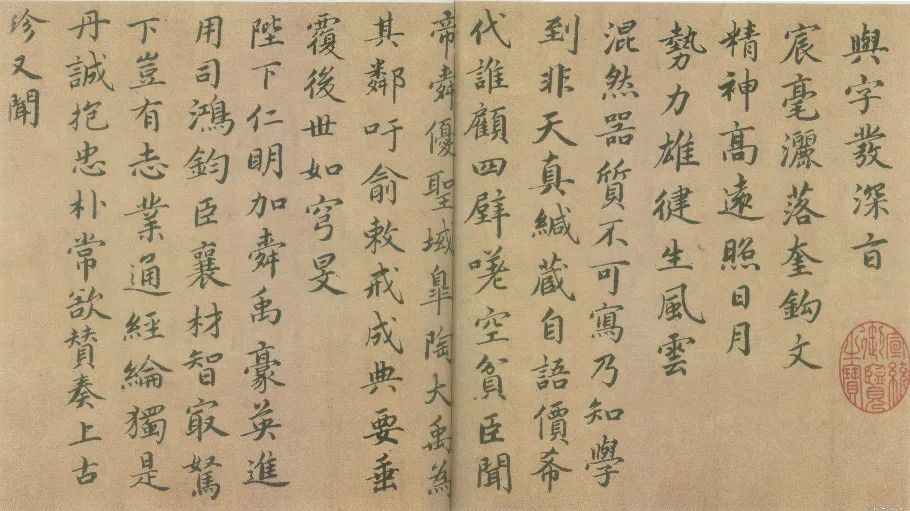 輿字發深旨
宸毫灑落奎鈎文
精神高遠照日月
勢力雄健生風雲
混然器質不可寫乃知學
到非天真緘藏自語價希
代誰顧四壁嗟空貧臣聞
帝舜優聖域臯陶大禹為
其鄰吁俞敕戒成典要垂
覆後世如穹旻
陛下仁明加舜禹豪英進
用司鴻鈞臣襄材智㝡駑
下豈有志業通經綸獨是
丹誠抱忠朴常欲贊奏上古
珍又聞
宣統御覽之寶